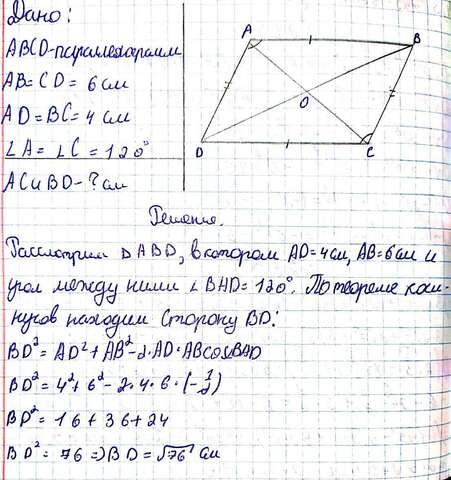 Дано:
ABCD-параллелограмм
AB=CD=6см
AD=BC=4см
∠A=∠C=120°
ACиBD-?см
A
B
O
D
C
Решение.
Рассмотрим ΔABD, в котором AD=4см, AB=6см и
угол между ними ∠BAD=120°. По теореме коси-
нусов находим сторону BD:
BD²=AD²+AB²-2·AD·ABcos∠BAD
BD²=4²+6²-2·4·6·(-1/2)
BD²=16+36+24
BD²=76=>BD=√76 см